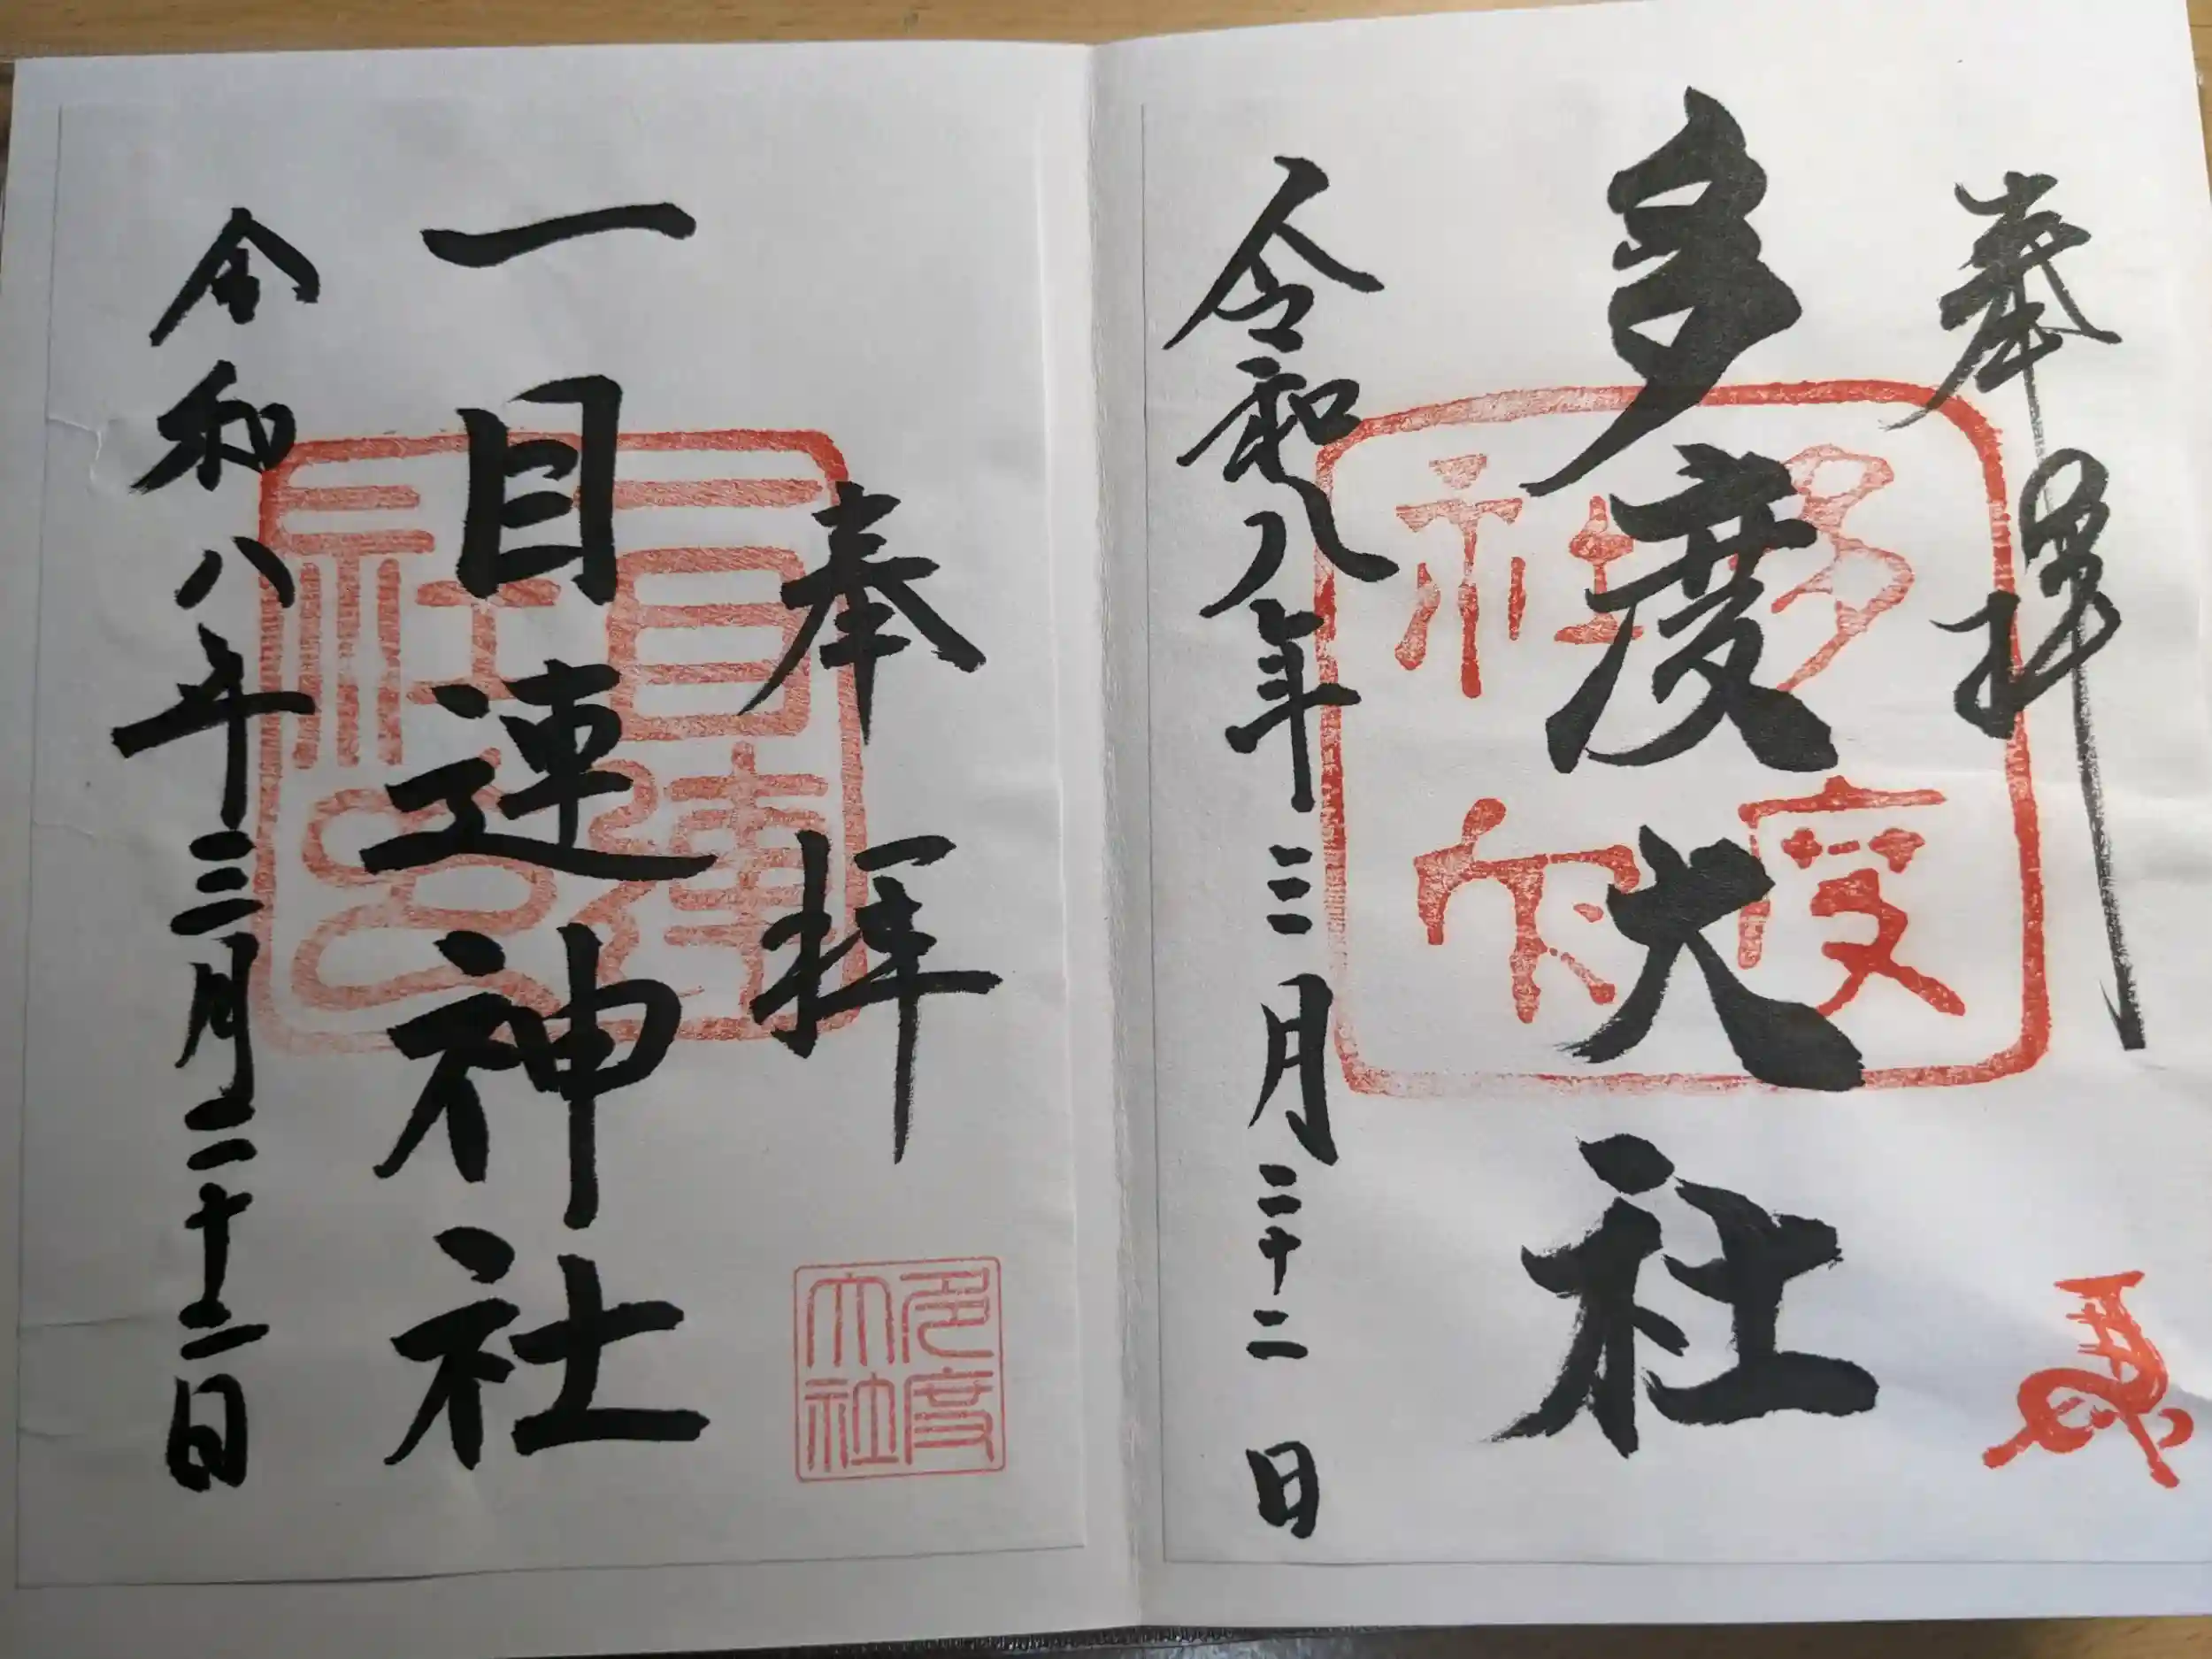 奉拝
多度大社
令和八年三月二十二日
多度
大社
奉拝
一目連神社
令和八年三月二十二日
一目連
社印
多度
大社